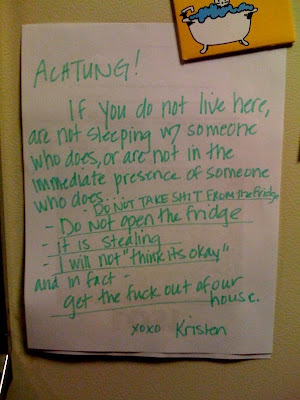 ACHTUNG!
If you do not live here,
are not sleeping w/ someone
who does, or are not in the
immediate presence of someone
who does...
- DO NOT TAKE SHIT FROM the fridge
- Do not open the fridge
- it is stealing
I will not "think its okay"
and in fact -
get the fuck out of our
house.
xoxo Kristen